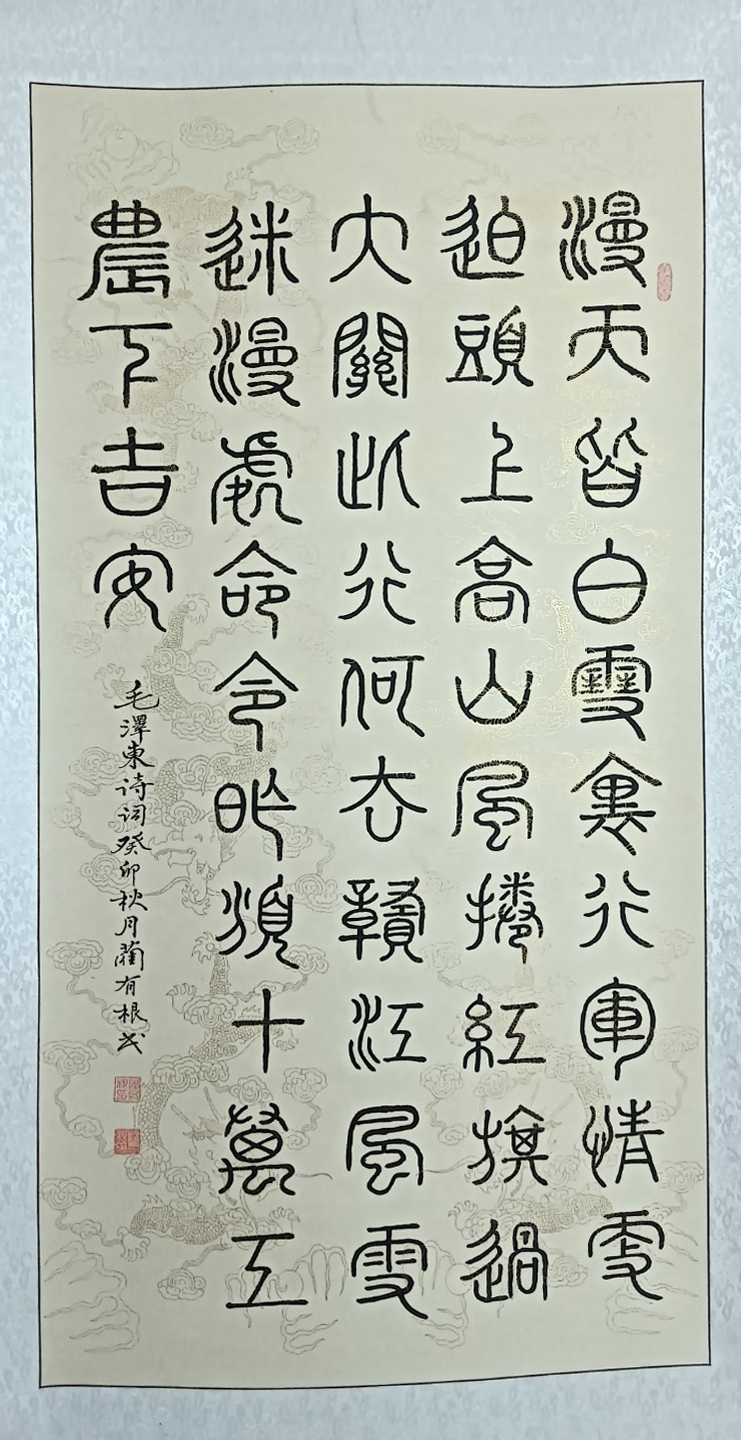 漫天皆白雪裏行軍情更
迫頭上高山風捲紅旗過
大關此行何去贛江風雪
迷漫處命令昨頒十萬工
農下吉安
毛澤東诗词癸卯秋月藺有根书